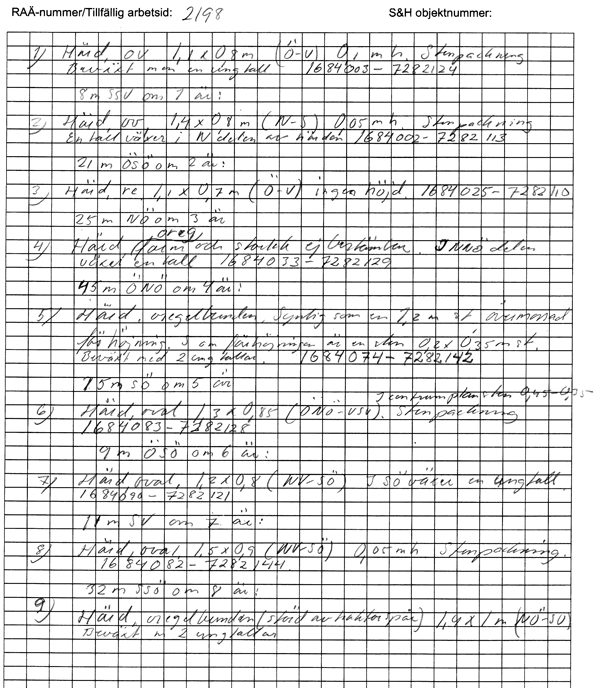 RAÄ-nummer/Tillfällig arbetsid: 2198 S&H objektnummer:
1) Härd, ov 1,1 x 0,8 m (Ö-V) 0,1 mh Stenpackning
Beväxt med en ungtall 1684003-7282124
8 m SSV om 1 är:
2) Härd ov, 1,4 x 0,8 m (N-S) 0,05 mh. Stenpackning
En tall växer i N delen av härden 1684002-7282113
21 m ÖSÖ om 2 är:
3) Härd, re 1,1 x 0,7 m (Ö-V) ingen höjd. 1684025-7282110
25 m NÖ om 3 är
oreg,
4) Härd form och storlek ej bestämbar. I NNÖ delen
växer en tall 1684033-7282129
45 m ÖNÖ om 4 är:
5) Härd, oregelbunden. Synlig som en 1,2 m st övermossad
förhöjning. I om förhöjningen är en sten 0,2 x 0,35 m st.
Beväxt med 2 ungtallar. 1684074-7282142
15 m SÖ om 5 är
I centrum plan sten 0,45-0,35
6) Härd, oval 1,3 x 0,85 (ÖNÖ-VSV). Stenpackning
1684083-7282128
9 m ÖSÖ om 6 är:
7) Härd, oval, 1,2 x 0,8 (NV-SÖ) I SÖ växer en ungtall
1684090-7282121
11 m SV om 7 är:
8) Härd, oval 1,5 x 0,9 (NV-SÖ) 0,05 mh Stenpackning.
1684082-7282144
32 m SSÖ om 8 är:
9) Härd, oregelbunden (störd av traktorspår) 1,4 x 1 m (NÖ-SV)
Beväxt m 2 ungtallar